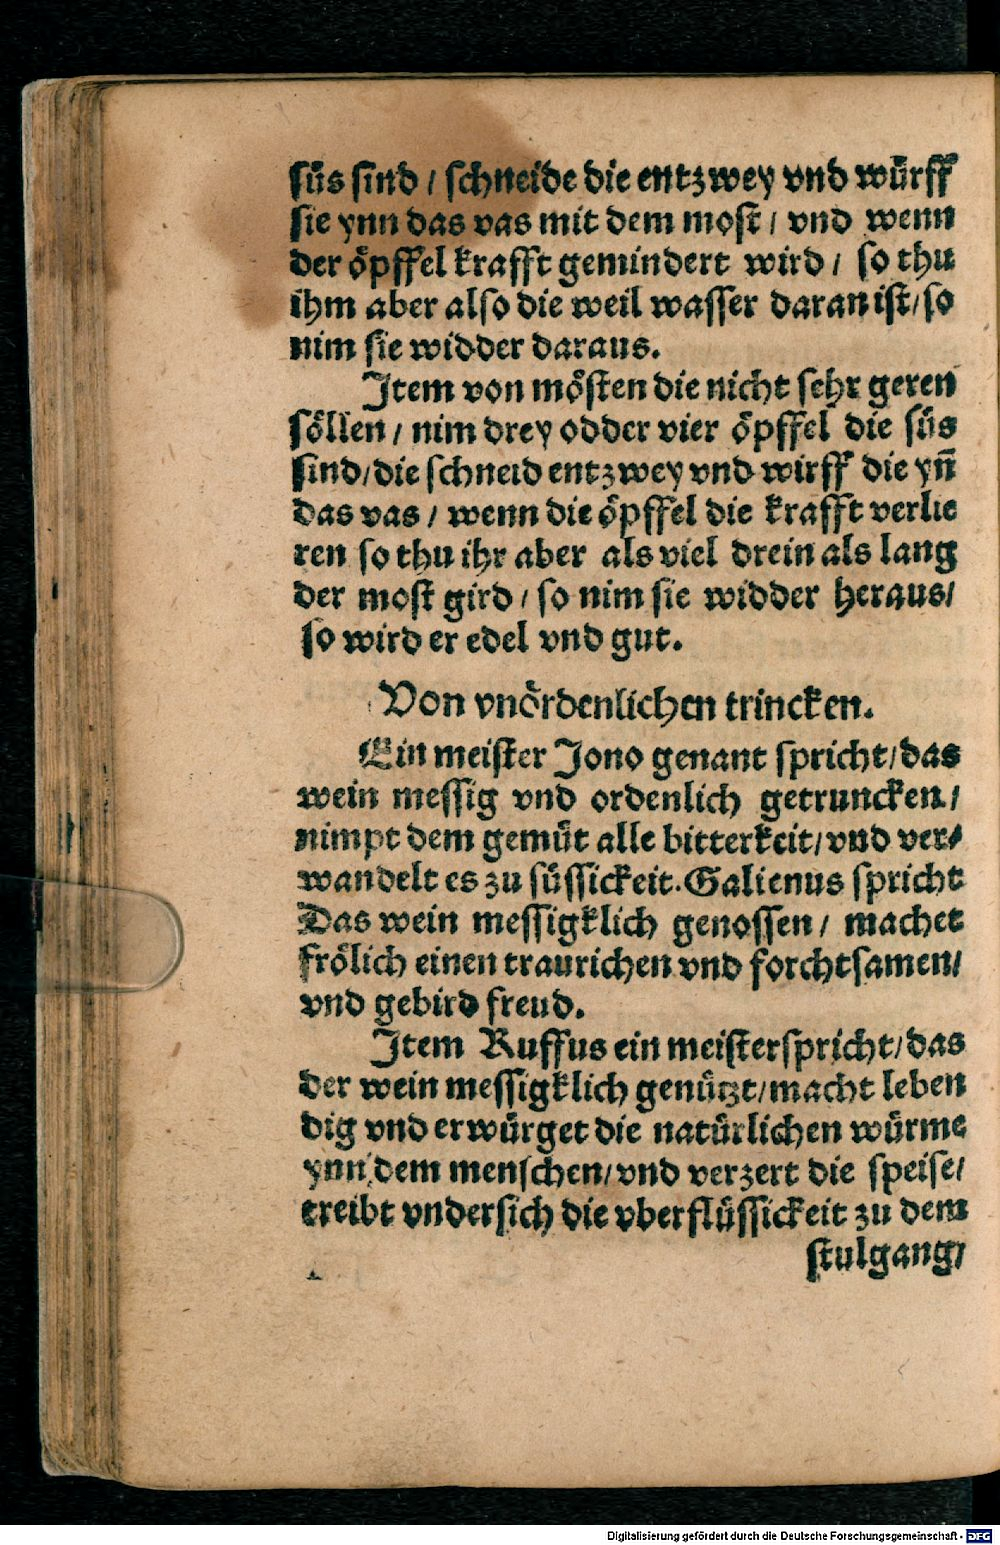 süs sind / schneide die entzwey vnd würff
sie ynn das vas mit dem most / vnd wenn
der öpffel krafft gemindert wird / so thu
ihm aber also die weil wasser daran ist / so
nim sie widder daraus.
Item von mösten die nicht sehr geren
söllen / nim drey odder vier öpffel die süs
sind / die schneid entzwey vnd wirff die yn̄
das vas / wenn die öpffel die krafft verlie
ren so thu ihr aber als viel drein als lang
der most gird / so nim sie widder heraus /
so wird er edel vnd gut.
Von vnördenlichen trincken.
Ein meister Jono genant spricht / das
wein messig vnd ordenlich getruncken /
nimpt dem gemüt alle bitterkeit / vnd ver⸗
wandelt es zu süssickeit. Galienus spricht
Das wein messigklich genossen / machet
frölich einen traurichen vnd forchtsamen /
vnd gebird freud.
Item Ruffus ein meister spricht / das
der wein messigklich genützt / macht leben
dig vnd erwürget die natürlichen würme
ynn dem menschen / vnd verzert die speise /
treibt vndersich die vberflüssickeit zu dem
stulgang /
Digitalisierung gefördert durch die Deutsche Forschungsgemeinschaft - DFG